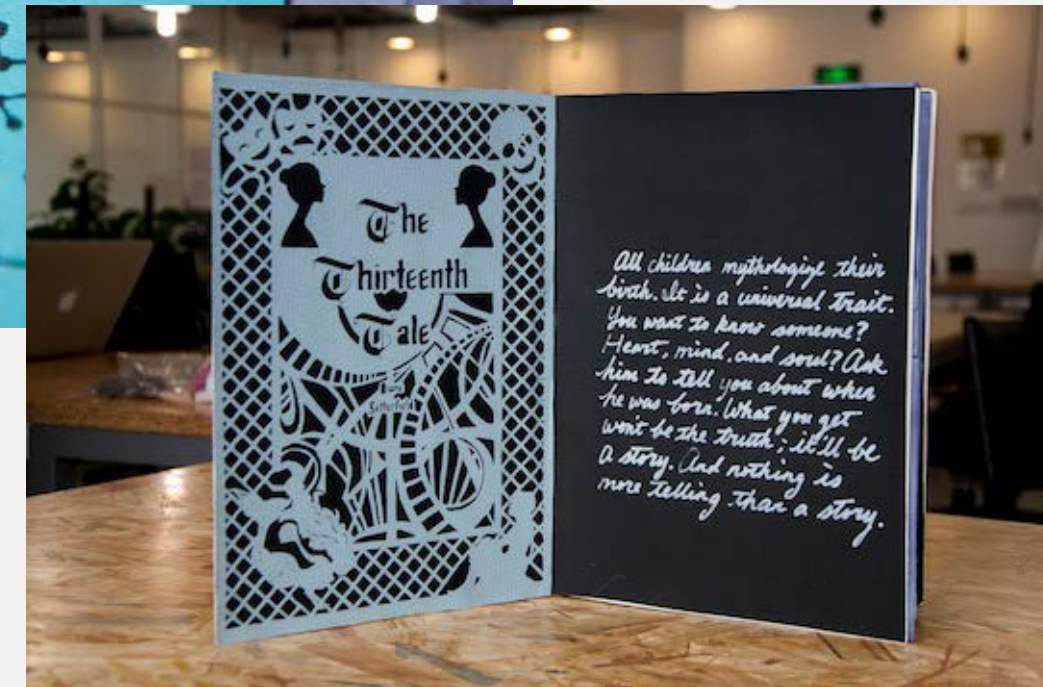 The
Thirteenth
Tale
Setterfield
All children mythologize their
birth. It is a universal trait.
You want to know someone?
Heart, mind, and soul? Ask
him to tell you about when
he was born. What you get
won't be the truth; it'll be
a story. And nothing is
more telling than a story.